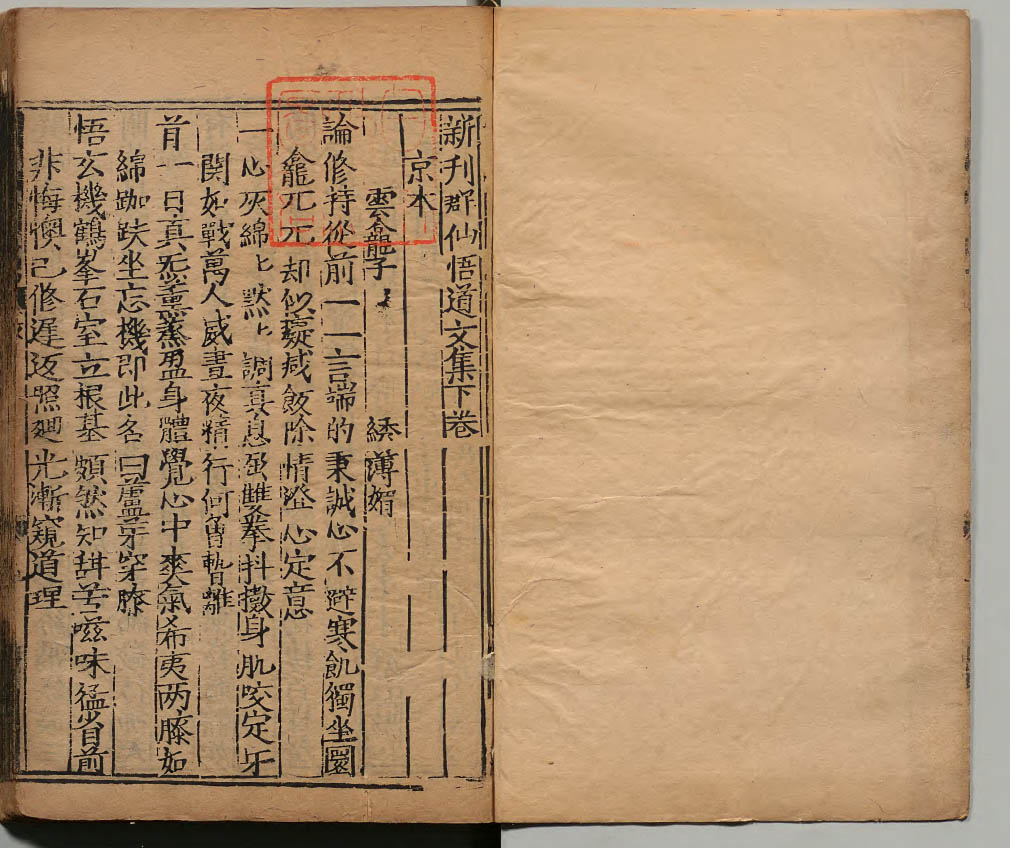 新刊群仙悟道文集下卷
京本
雲龕子 綉薄媚
論修持從前一一言端的秉誠心不避寒飢獨坐圜
龕兀兀却似癡減飯除情澄心定意
一心灰綿〻默〻調真息乖雙拳抖擻身肌咬定牙
関如戰萬人威晝夜精行何曾暫離
首一日真炁薰蒸盈身體覺心中爽氣希夷两膝如
綿跏趺坐忘機即此名曰蘆芽穿膝
悟玄機鶴峯石室立根基頗然知甜苦嗞味猛省前
非悔懊己修遲返照廻光漸窺道理